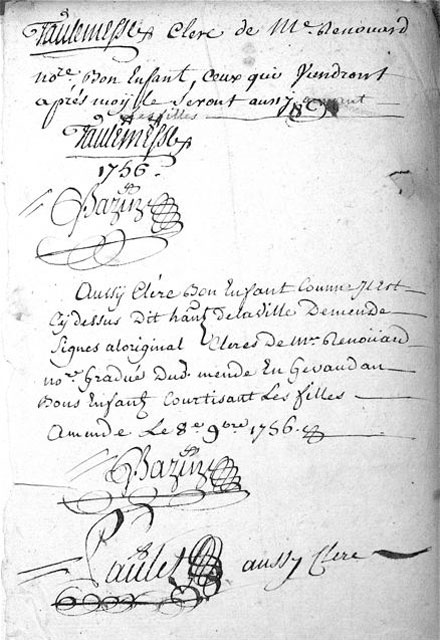 Taulemesse Clerc de Me. Renouard
nore. Bon Enfant, Ceux qui Viendront
aprés moy le Seront aussy
les filles
Taulemesse
1756.
Bazin
Aussy Clerc Bon Enfant Comme Jl Est
Cy dessus dit hant de la Ville Demende
Signes a loriginal Clercs de Mr. Renoüard
nore. Gradué Dud. mende En Gevaudan
Bons Enfants Courtisant Les filles
Amende Le 8e. 9bre 1756.
Bazin
Paulet aussy Clerc